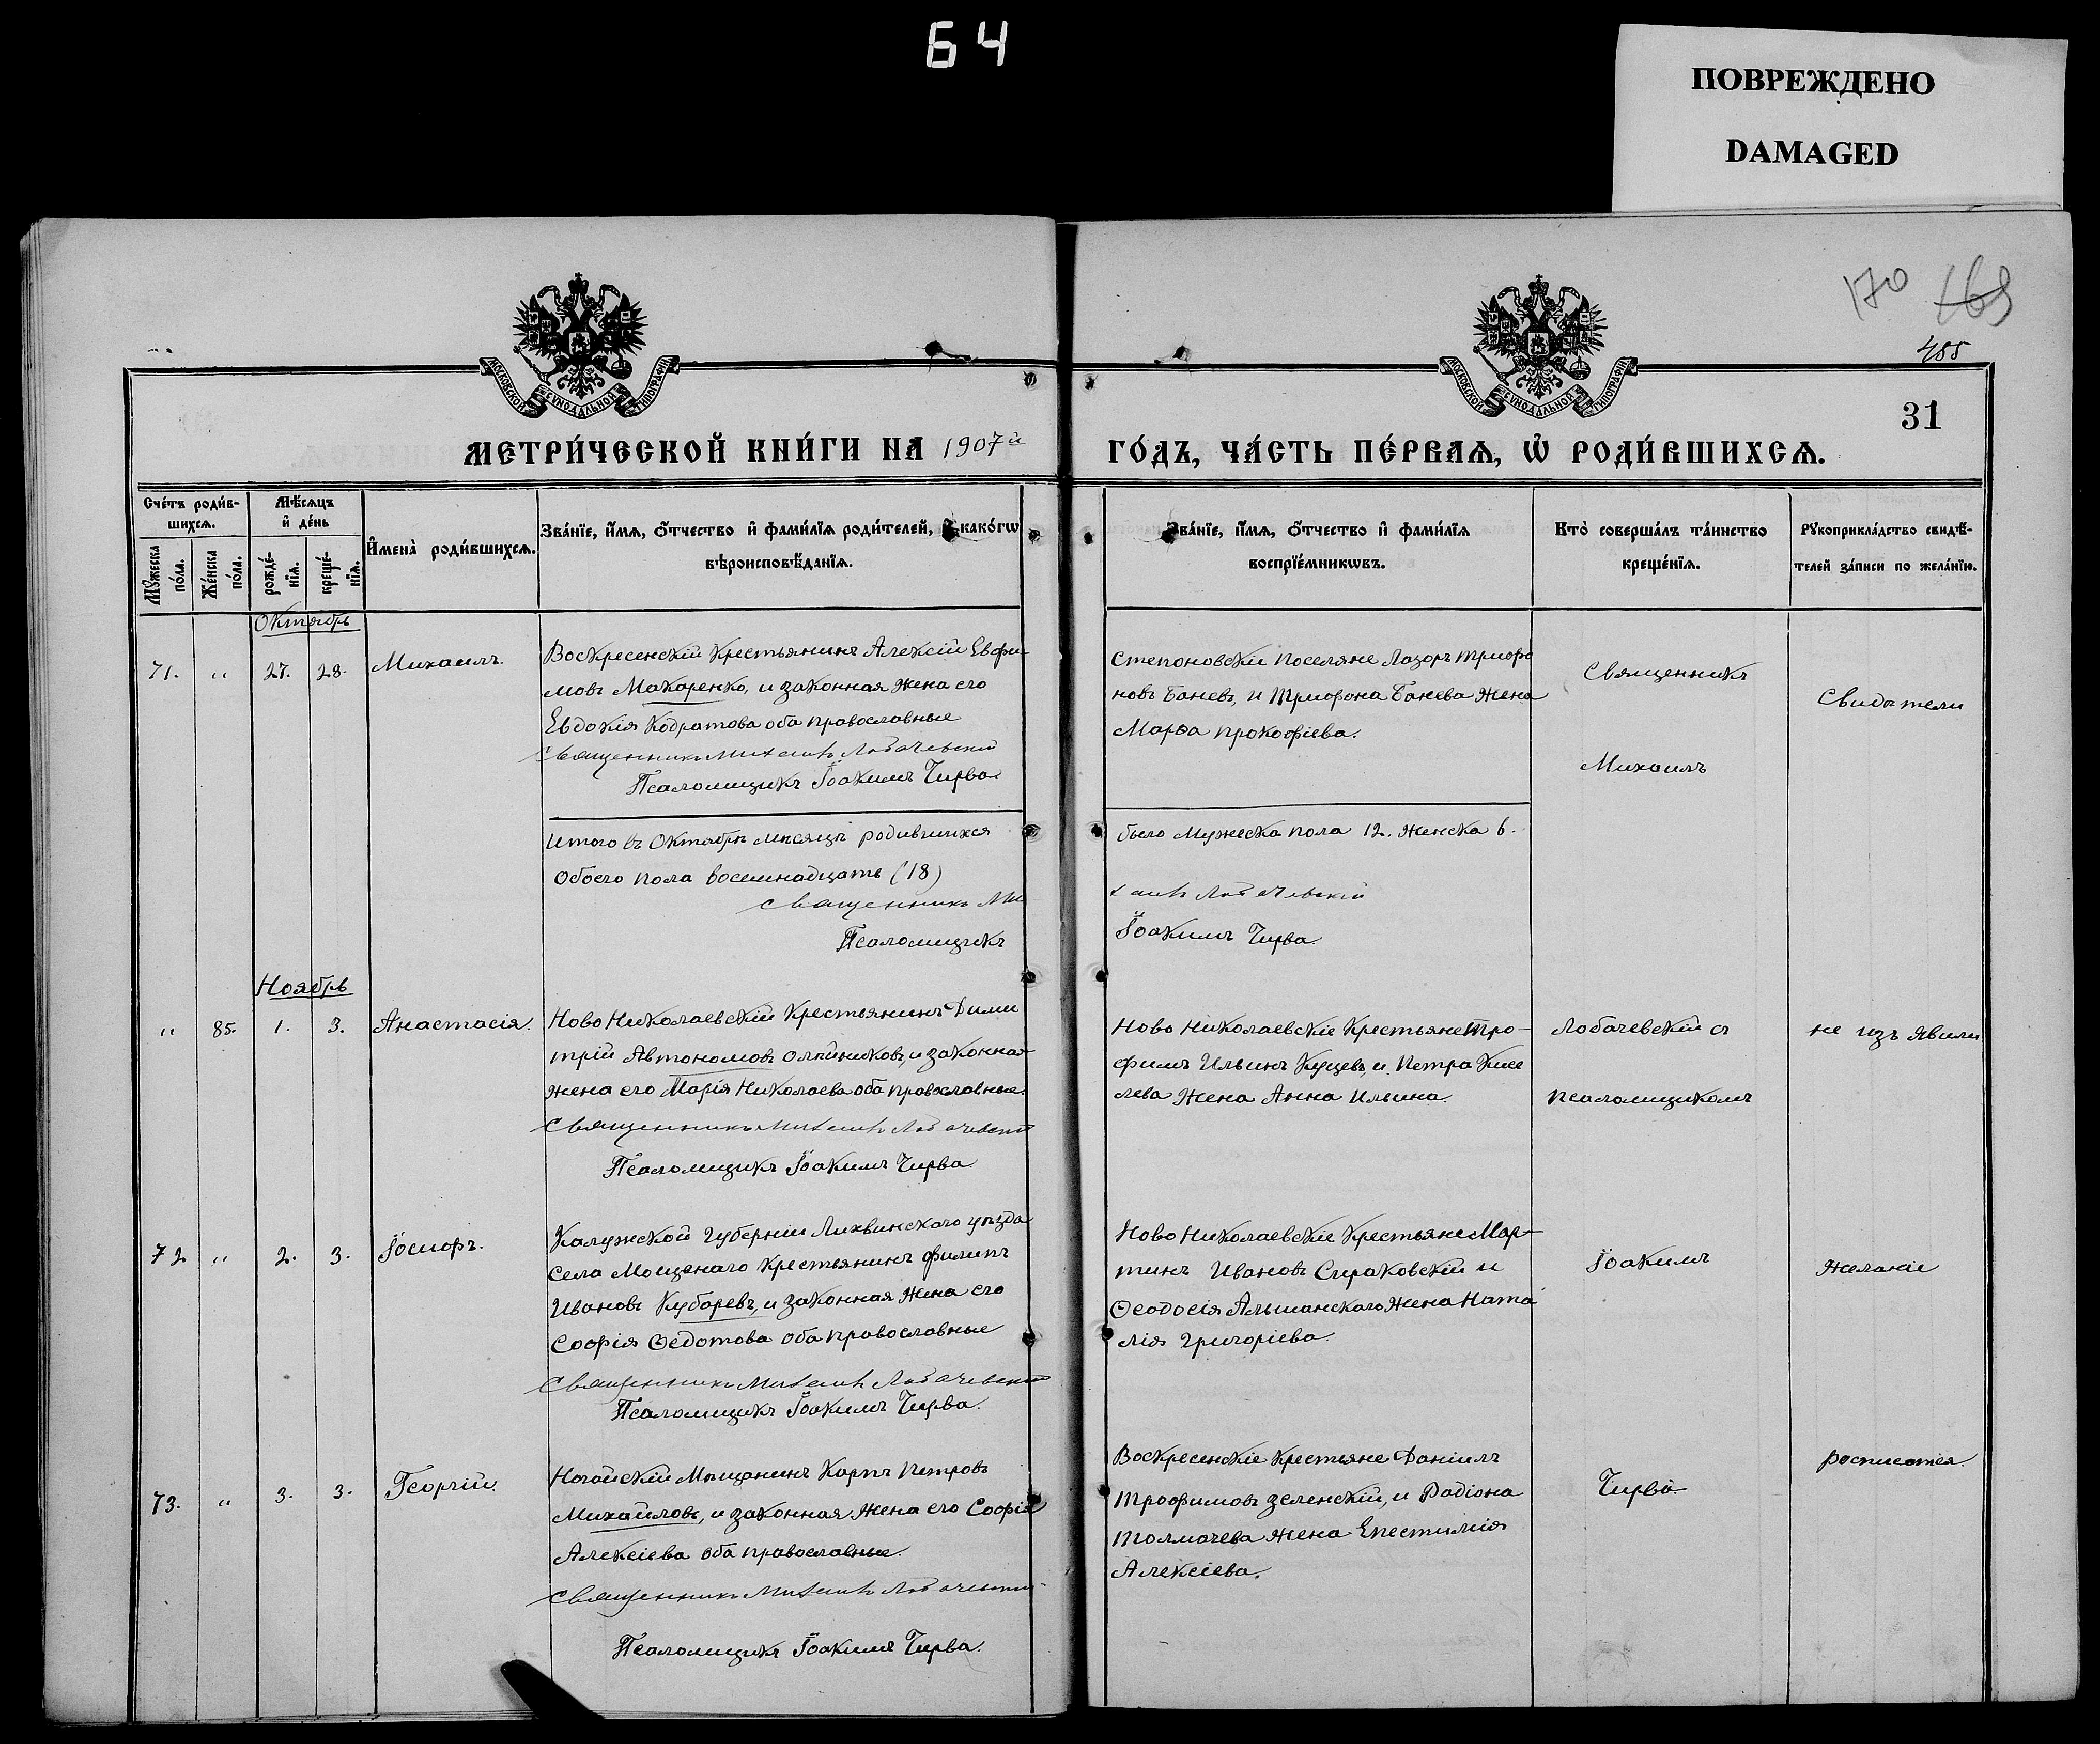 64
ПОВРЕЖДЕНО
DAMAGED
170 169
455
31
МОСКОВСКОЙ СѴНОДАЛЬНОЙ ТИПОГРАФІИ
МОСКОВСКОЙ СѴНОДАЛЬНОЙ ТИПОГРАФІИ
МЕТРИ́ЧЕСКОЙ КНИ́ГИ НА 1907й ГО́ДЪ, ЧА́СТЬ ПЕ́РВАѦ, Ѡ҆ РОДИ́ВШИХСѦ.
Сче́тъ роди́в-
шихсѧ.
Мѣ́сѧцъ
и҆ де́нь
Мꙋ́жеска
по́ла.
Же́нска
по́ла.
рожде́-
нїѧ.
креще́-
нїѧ.
И҆мена̀ роди́вшихсѧ.
Зва́нїе, и҆́мѧ, ѻ҆́тчество и҆ фами́лїѧ роди́телей, и҆ како́гѡ
вѣроисповѣ́данїѧ.
Зва́нїе, и҆́мѧ, ѻ҆́тчество и҆ фами́лїѧ
воспрїе́мникѡвъ.
Кто̀ соверша́лъ та́инство
креще́нїѧ.
Рꙋкоприкла́дство свидѣ́-
телей за́писи по жела́нїю.
Октябрь
71. " 27. 28. Михаилъ.
Воскресенскій Крестьянинъ Алексій Евфи-
мовъ Макаренко, и законная жена его
Евдокія Кодратова оба православные
Священникъ Михаилъ Лобачевскій
Псаломщикъ Іоакимъ Чирва.
Степоновскіе поселяне Лазоръ Трифо
новъ Баневъ, и Трифона Банева жена
Марѳа Прокофіева.
Священникъ
Михаилъ
Свидѣтели
Итого въ Октябрѣ мѣсяцѣ родившихся
было Мужеска пола 12. Женска 6.
Обоего пола восемнадцать (18)
Священникъ Михаилъ Лобачевскій
Псаломщикъ Іоакимъ Чирва.
Ноябрь
" 85. 1. 3. Анастасія.
Ново Николаевскій Крестьянинъ Дими
трій Автономовъ Олѣйниковъ, и законная
жена его Марія Николаева оба православные.
Священникъ Михаилъ Лобачевскій
Псаломщикъ Іоакимъ Чирва.
Ново Николаевскіе Крестьяне Тро-
фимъ Ильинъ Куцевъ, и Петра Кисе
лева жена Анна Ильина.
Лобачевскій съ
псаломщикомъ
не изъявили
72 " 2. 3. Іосифъ.
Калужской Губерніи Лихвинскаго уѣзда
села Мощенаго Крестьянинъ Филипъ
Ивановъ Кубаревъ, и законная жена его
Софія Ѳедотова оба православные
Священникъ Михаилъ Лобачевскій
Псаломщикъ Іоакимъ Чирва.
Ново Николаевскіе Крестьяне Мар-
тинъ Ивановъ Сираковскій и
Ѳеодосія Альшанскаго жена Ната
лія Григоріева.
Іоакимъ
желаніе
73. " 3. 3. Георгій.
Ногайскій Мѣщанинъ Карпъ Петровъ
Михайловъ, и законная жена его Софія
Алексіева оба православные.
Священникъ Михаилъ Лобачевскій
Псаломщикъ Іоакимъ Чирва.
Воскресенскіе Крестьяне Даніилъ
Трофимовъ Зеленскій, и Радіона
Толмачева жена Епестимія
Алексіева.
Чирва.
росписатся.